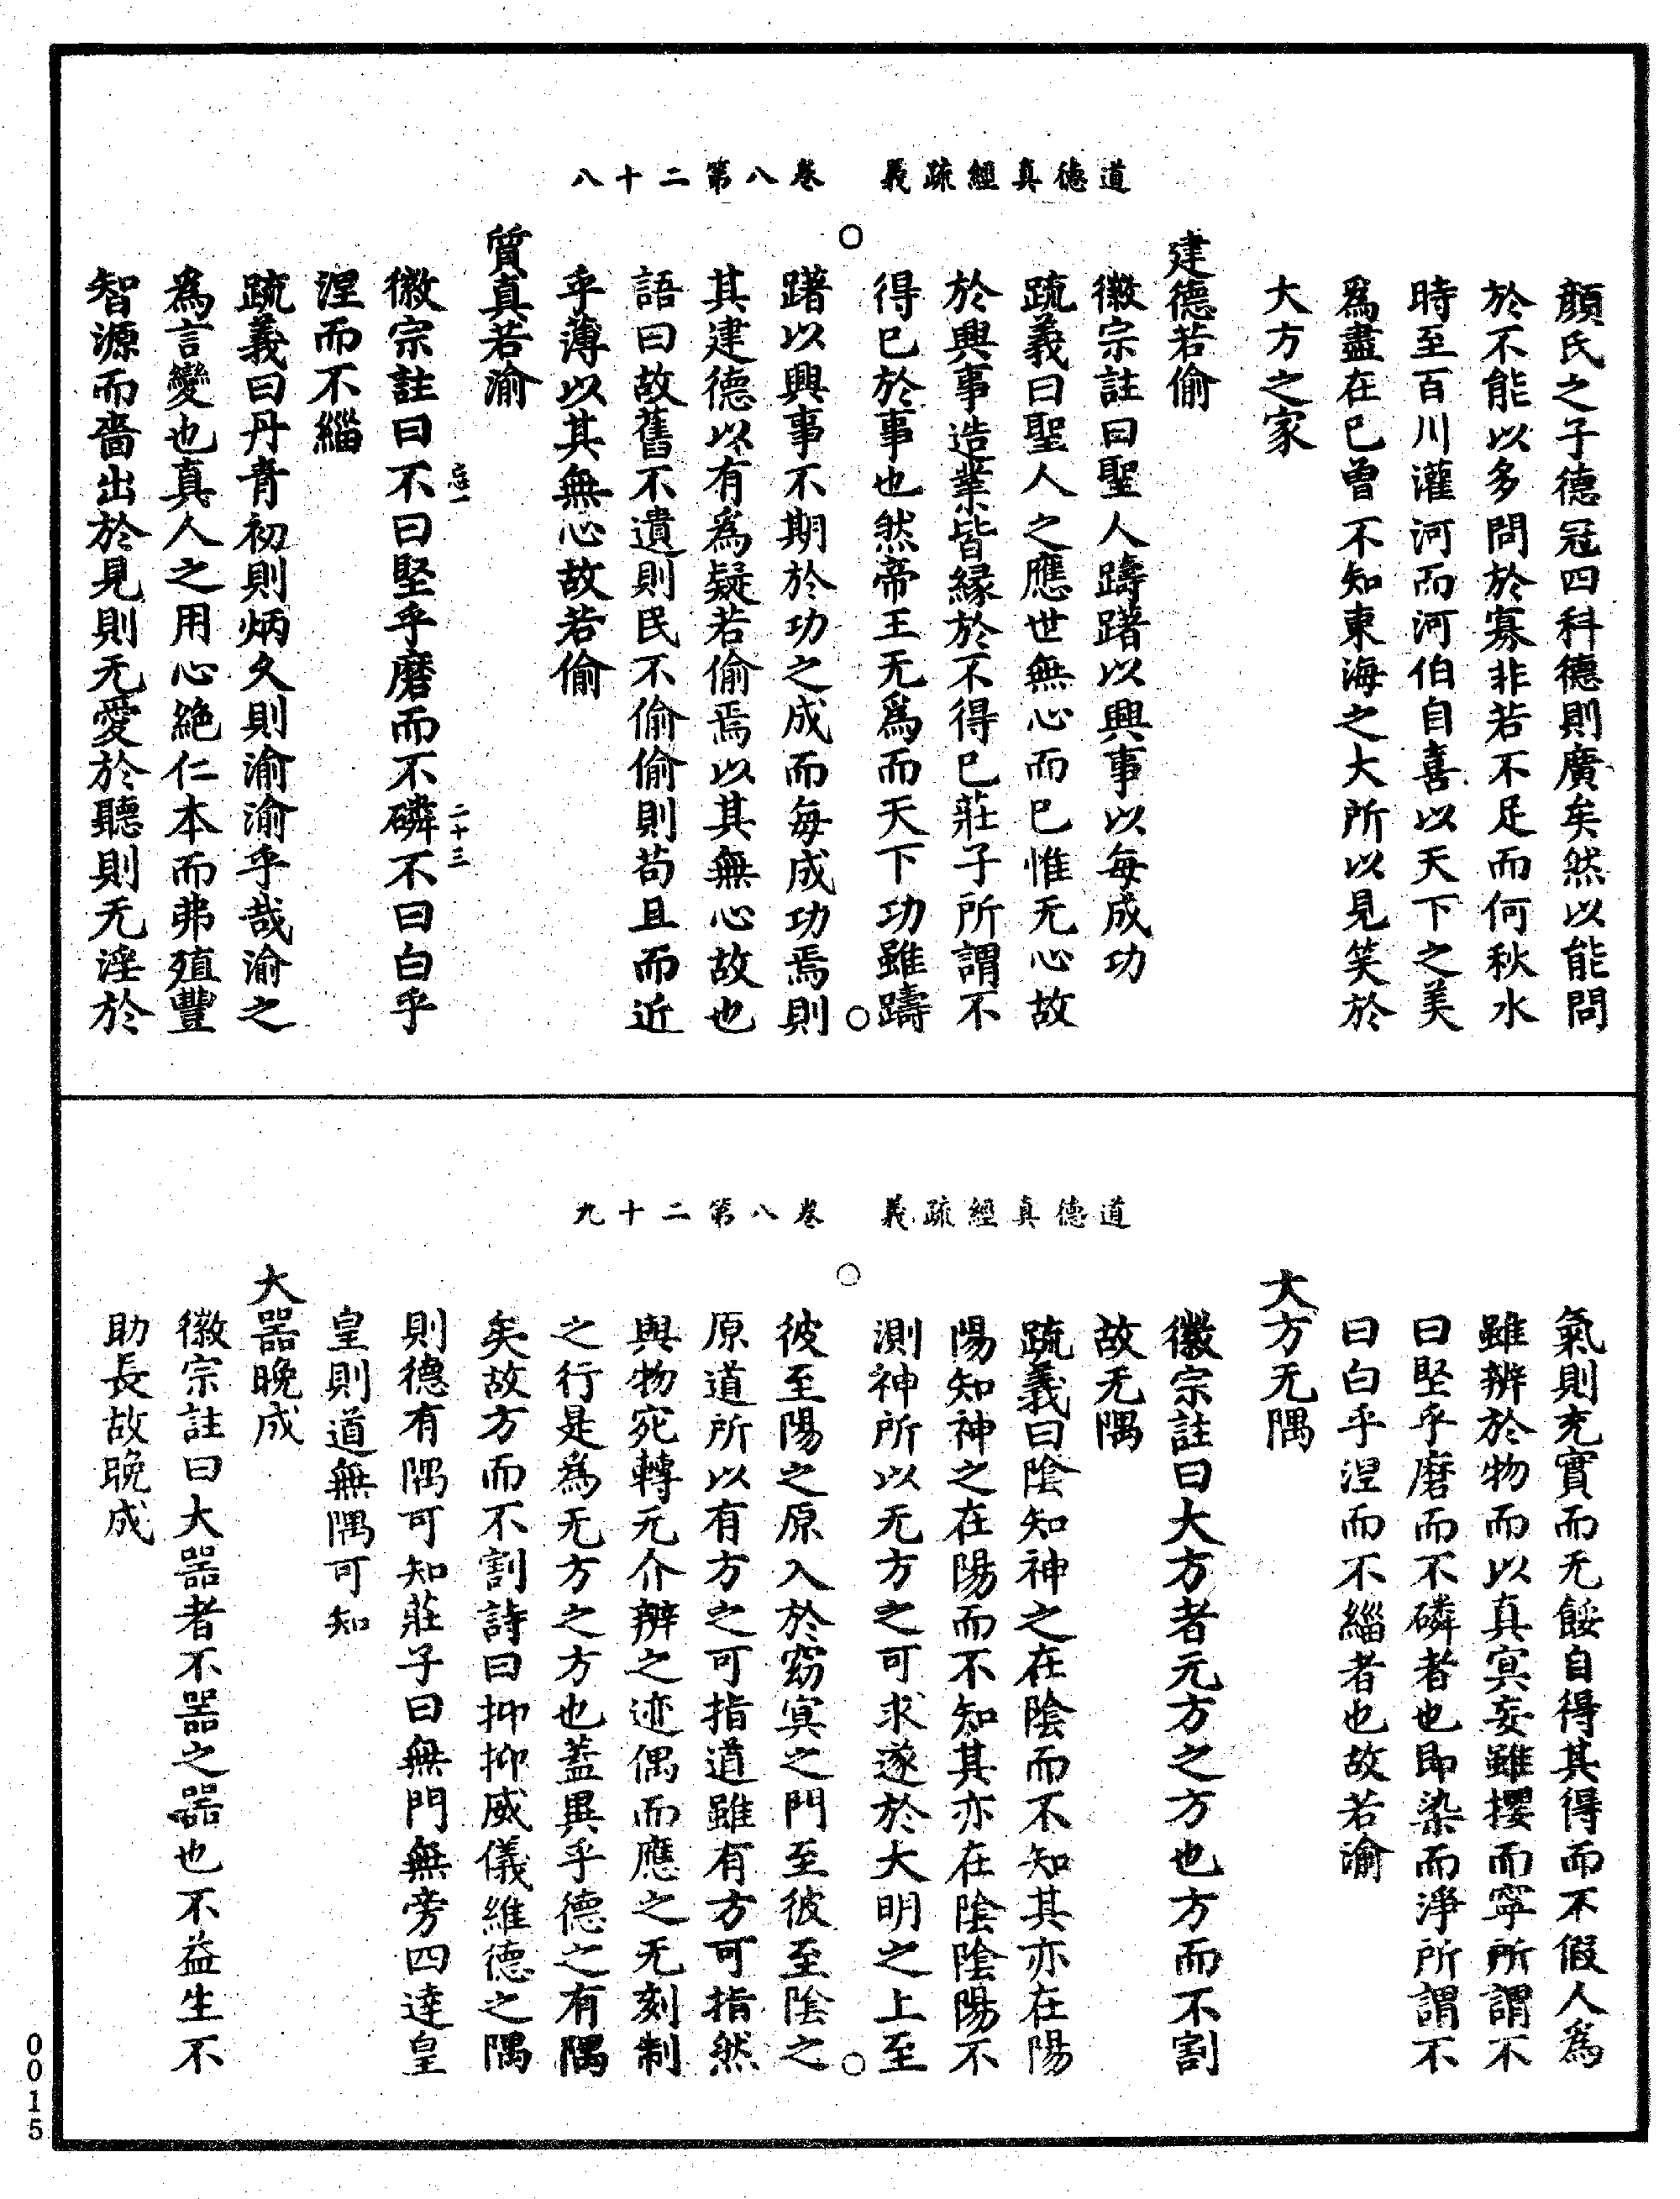 道德真經疏義　卷八第二十八
顏氏之子德冠四科德則廣矣然以能問
於不能以多問於寡非若不足而何秋水
時至百川灌河而河伯自喜以天下之美
爲盡在己曾不知東海之大所以見笑於
大方之家
建德若偷
徽宗註曰聖人躊躇以興事以每成功
疏義曰聖人之應世無心而已惟无心故
於興事造業皆緣於不得已莊子所謂不
得已於事也然帝王无爲而天下功雖躊
躇以興事不期於功之成而每成功焉則
其建德以有爲疑若偷焉以其無心故也
語曰故舊不遺則民不偷偷則苟且而近
乎薄以其無心故若偷
質真若渝
徽宗註曰不曰堅乎磨而不磷不曰白乎
忘一　二十三
涅而不緇
疏義曰丹青初則炳久則渝渝乎哉渝之
爲言變也真人之用心絶仁本而弗殖豐
智源而嗇出於見則无愛於聽則无淫於
道德真經疏義　卷八第二十九
氣則充實而无餒自得其得而不假人爲
雖辨於物而以真冥妄雖攖而寧所謂不
曰堅乎磨而不磷者也即染而淨所謂不
曰白乎涅而不緇者也故若渝
大方无隅
徽宗註曰大方者元方之方也方而不割
故无隅
疏義曰陰知神之在陰而不知其亦在陽
陽知神之在陽而不知其亦在陰陰陽不
測神所以无方之可求遂於大明之上至
彼至陽之原入於窈冥之門至彼至陰之
原道所以有方之可指道雖有方可指然
與物宛轉元介辨之迹偶而應之无刻制
之行是爲无方之方也蓋異乎德之有隅
矣故方而不割詩曰抑抑威儀維德之隅
則德有隅可知莊子曰無門無旁四達皇
皇則道無隅可知
大器晚成
徽宗註曰大器者不器之器也不益生不
助長故晚成
0015